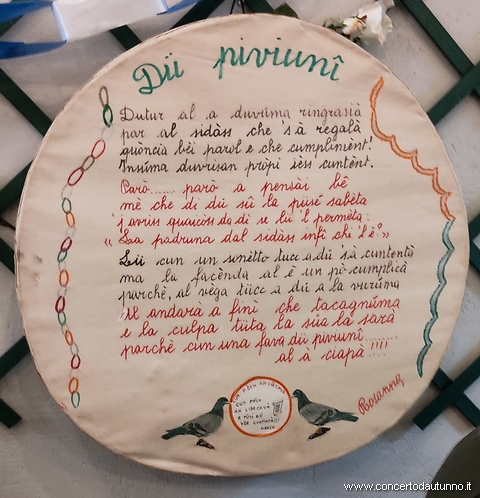 Dü piviunî
Dutur al a duvüma ringrasià
par al sidàss che 'sà regalà
quència bèi parol e che cumpliment!
Insüma duvrisan pròpi ièss cuntent.
Parò....... parò a pensài bê
mè che di dü sû la püsé sabèta
's avriss quaicòss da dì se lü 'l permèta:
« La padruna dal sidàss infî chi 'l è?»
Lü cun un sonètto tücc a dü 'sà cuntentà
ma la facènda al è un pò cumplicà
parchè, al vèga tücc a dü a la vurüma
Al andarà a finì che tacagnüma
e la culpa tüta la sûa la sarà
parchè cun una fava dü piviunî.........
al à ciapà....!!!!
CUN PÒCH
Rosanna
www.concertodautunno.it